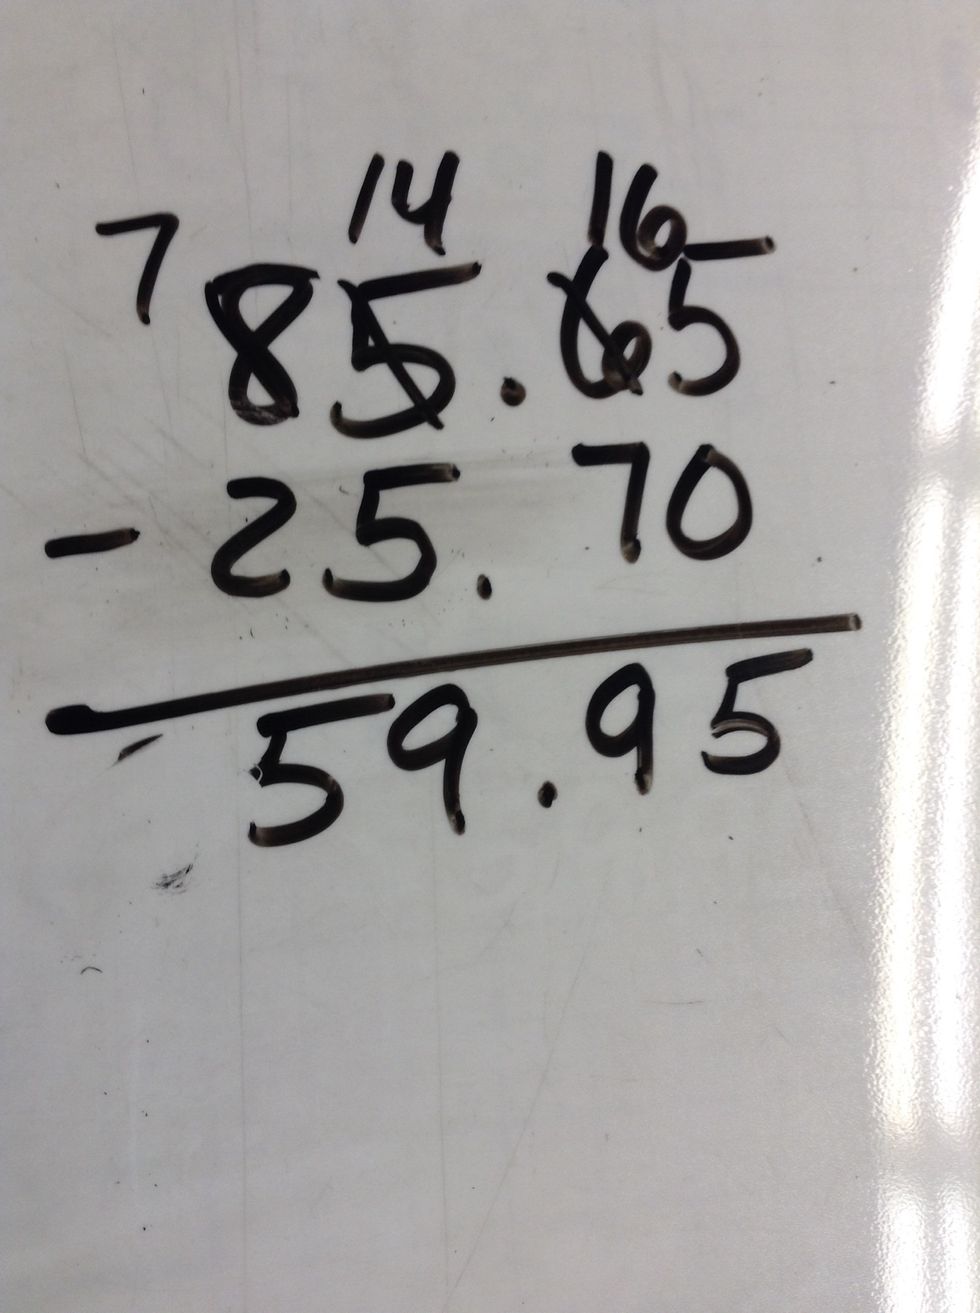 7 14 16
85.65
- 25.70
59.95